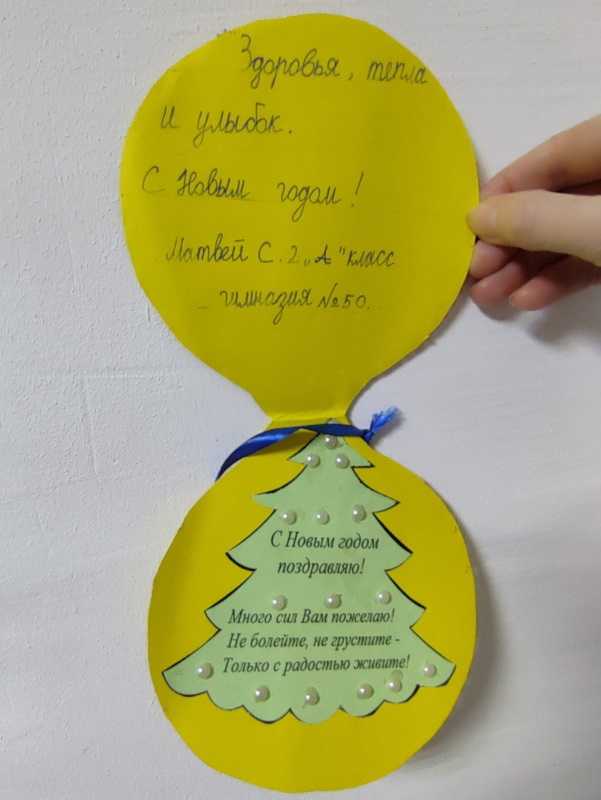 Здоровья, тепла
и улыбок.
С Новым годом!
Матвей С. 2 „А" класс
гимназия №50.
С Новым годом
поздравляю!
Много сил Вам пожелаю!
Не болейте, не грустите -
Только с радостью живите!